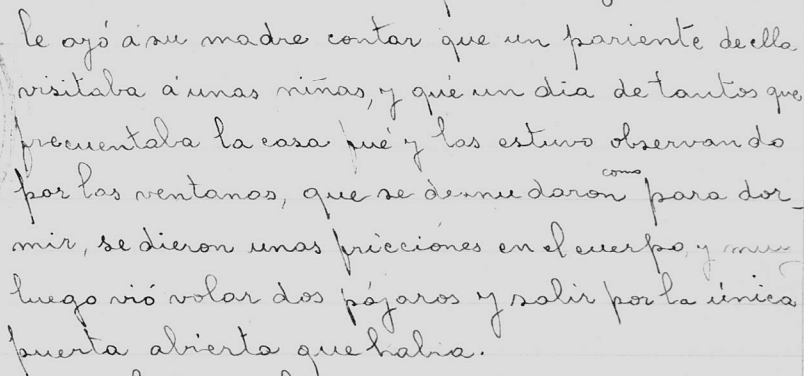 le oyó á su madre contar que un pariente de ella
visitaba á unas niñas, y qué un dia de tantos que
frecuentaba la casa fué y las estuvo observando
por las ventanas, que se desnudaron como para dor-
mir, se dieron unas fricciónes en el cuerpo, y muy
luego vió volar dos pájaros y salir por la única
puerta abierta que habia.